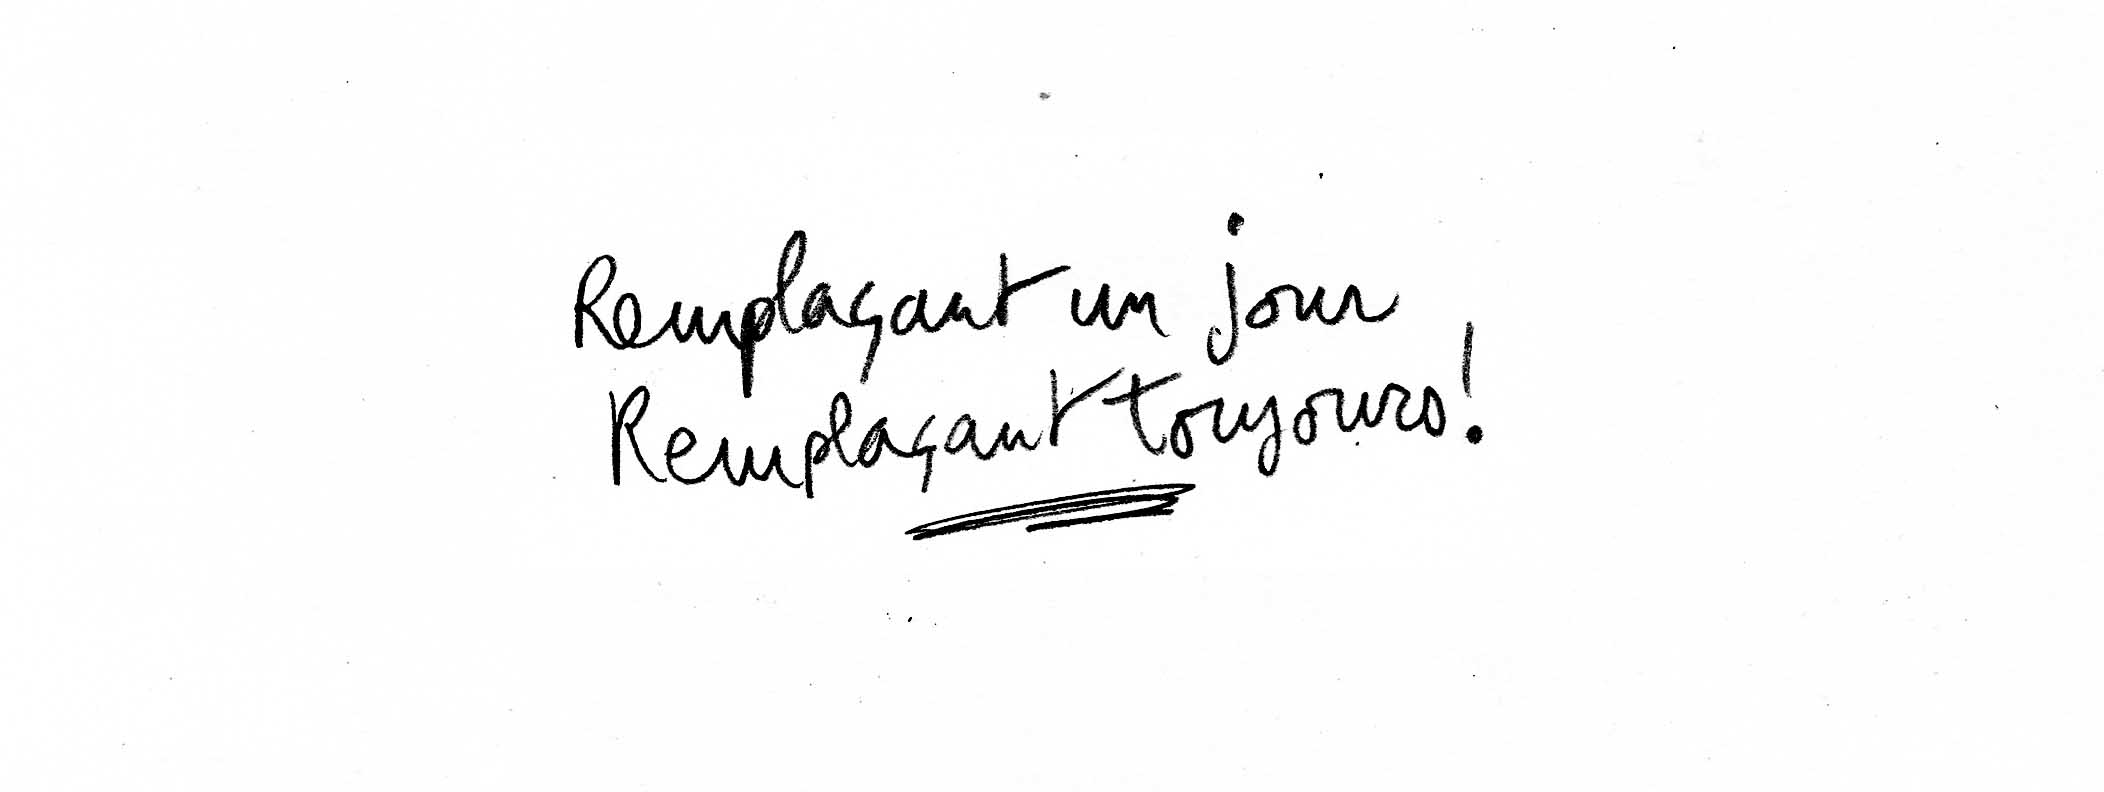 Remplaçant un jour
Remplaçant toujours!